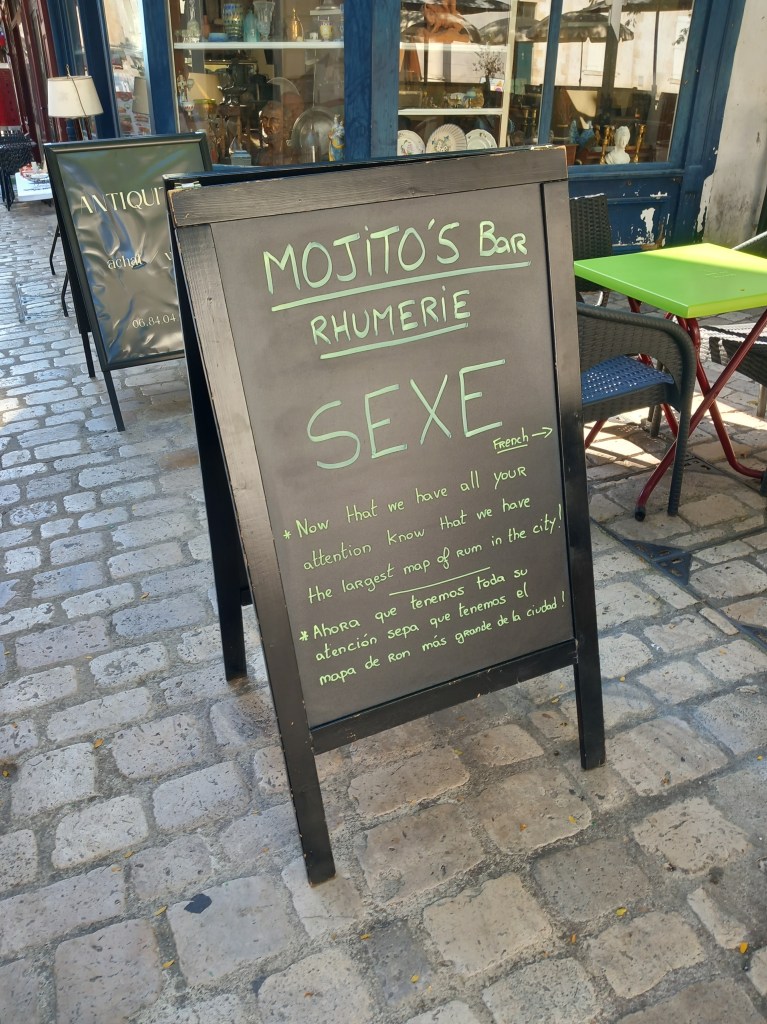 ANTIQUI
achat
06.84.04
MOJITO'S BAR
RHUMERIE
SEXE
French →
* Now that we have all your
attention know that we have
the largest map of rum in the city!
* Ahora que tenemos toda su
atención sepa que tenemos el
mapa de Ron más grande de la ciudad!